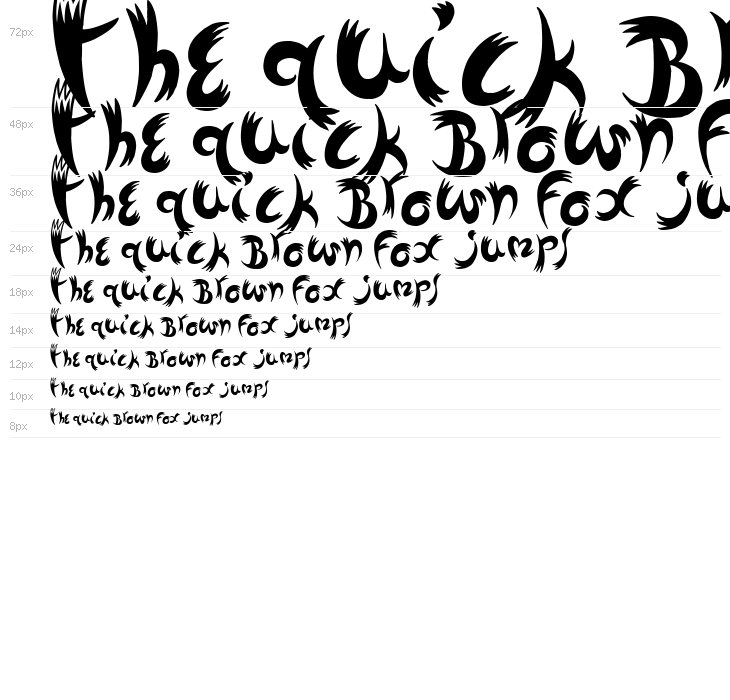 72px the quick B
48px the quick Brown F
36px the quick Brown Fox ju
24px the quick Brown Fox jumps
18px the quick Brown Fox jumps
14px the quick Brown Fox jumps
12px the quick Brown Fox jumps
10px the quick Brown Fox jumps
8px the quick Brown Fox jumps